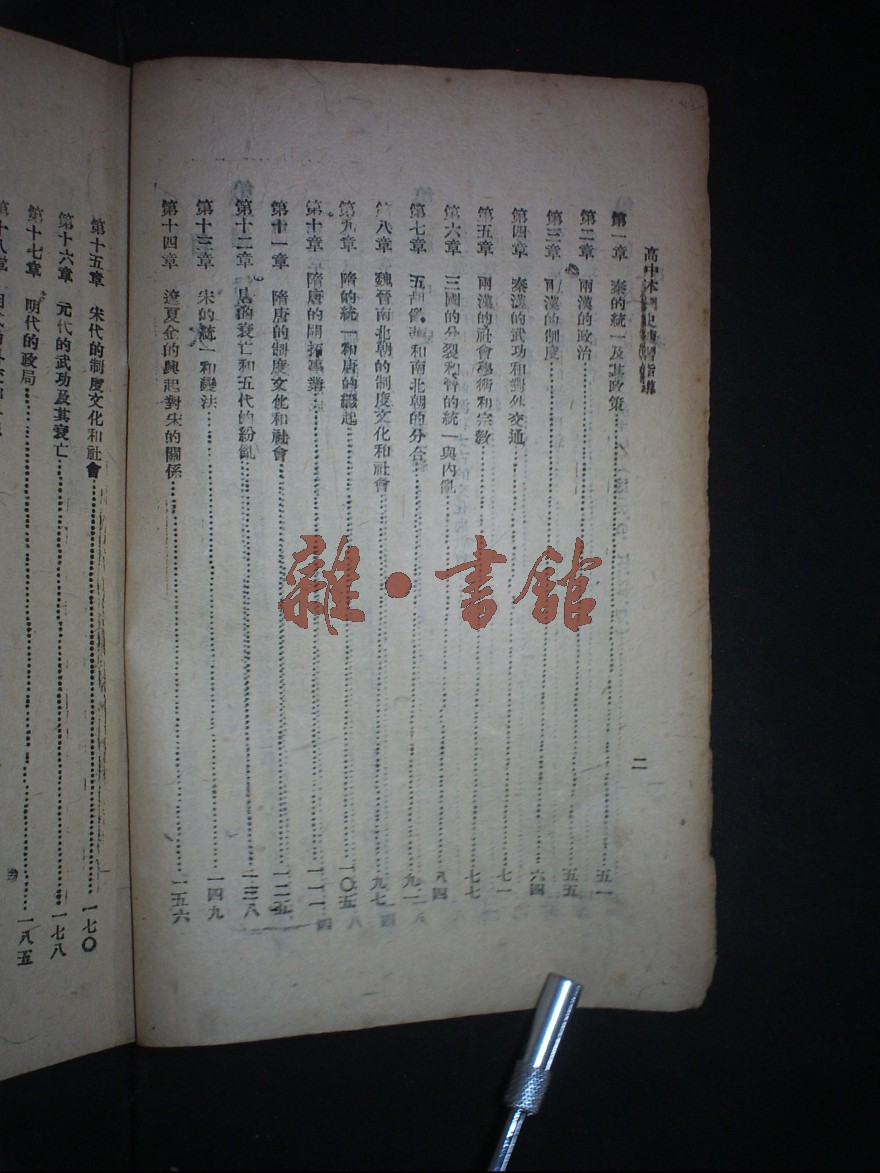 高中本國史複習指導
二
第一章 秦的統一及其政策 五一
第二章 兩漢的政治 五五
第三章 兩漢的制度 六四
第四章 秦漢的武功和對外交通 七一
第五章 兩漢的社會學術和宗教 七七
第六章 三國的分裂和晉的統一與內亂 八四
第七章 五胡亂華和南北朝的分合 九一
第八章 魏晉南北朝的制度文化和社會 九七
第九章 隋的統一和唐的繼起 一〇五
第十章 隋唐的開拓事業 一一一
第十一章 隋唐的制度文化和社會 一二五
第十二章 唐的衰亡和五代的紛亂 一三八
第十三章 宋的統一和變法 一四九
第十四章 遼夏金的興起對宋的關係 一五六
第十五章 宋代的制度文化和社會 一七〇
第十六章 元代的武功及其衰亡 一七八
第十七章 明代的政局 一八五
第十八章
雜·書館